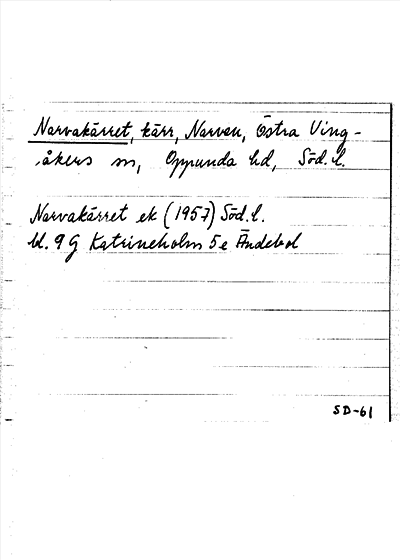 Narvakärret, kärr, Narven, Östra Ving-
åkers sn, Oppunda hd, Söd. l.
Narvakärret ek (1957) Söd. l.
bl. 9 G Katrineholm 5e Ändebol
SD-61